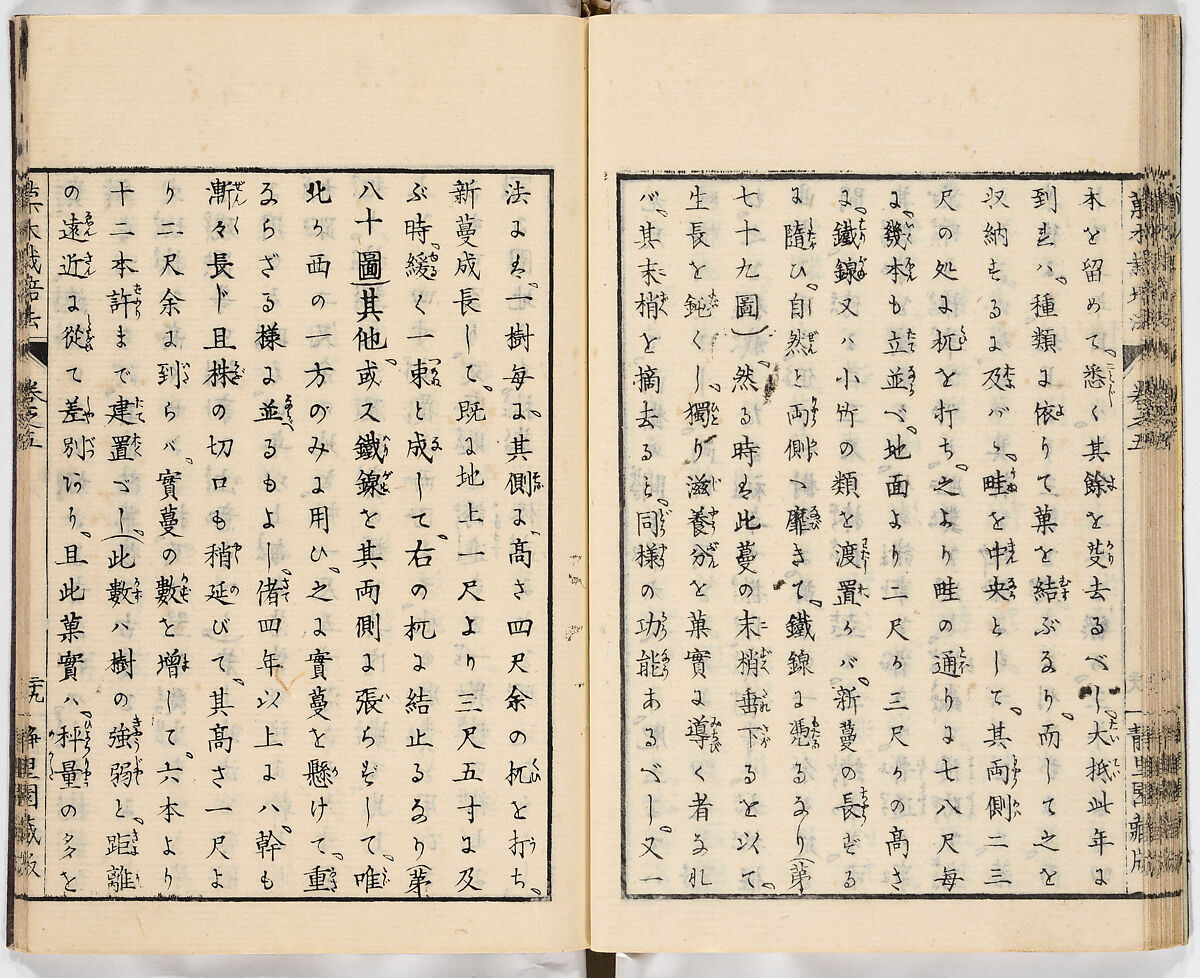 菓木栽培法 卷之五 靜里園藏版
本を留めて、悉く其餘を芟去るべし、大抵此年に
到れバ、種類に依りて菓を結ぶなり、而して之を
収納するに及バヽ、畦を中央として、其両側二三
尺の処に杭を打ち、之より畦の通りに七八尺毎
に、幾本も立並べ、地面より二尺か三尺かの高さ
に、鐵鎳又ハ小竹の類を渡置かバ、新蔓の長ずる
に隨ひ、自然と両側へ靡きて、鐵鎳に凭るなり(第
七十九圖)、然る時は此蔓の末梢垂下るを以て、
生長を鈍くし、獨り滋養分を菓實に導く者なれ
バ、其末梢を摘去ると、同様の功能あるべし、又一
法には、一樹毎に、其側に、高さ四尺余の杭を打ち、
新蔓成長して、既に地上一尺より三尺五寸に及
ぶ時、緩く一束と成して、右の杭に結止るなり(第
八十圖)其他、或ハ鐵鎳を其両側に張らずして、唯
北か西の一方のみに用ひ、之に實蔓を懸けて、重
ならざる様に並るもよし、偖四年以上にハ、幹も
漸々長ド且株の切口も稍延びて、其高さ一尺よ
り二尺余に到らバ、實蔓の數を增して、六本より
十二本許まで建置べし(此數ハ樹の強弱と、距離
の遠近に從て差別あり、且此菓實ハ、秤量の多を
菓木栽培法 卷之五 三九 靜里園藏版